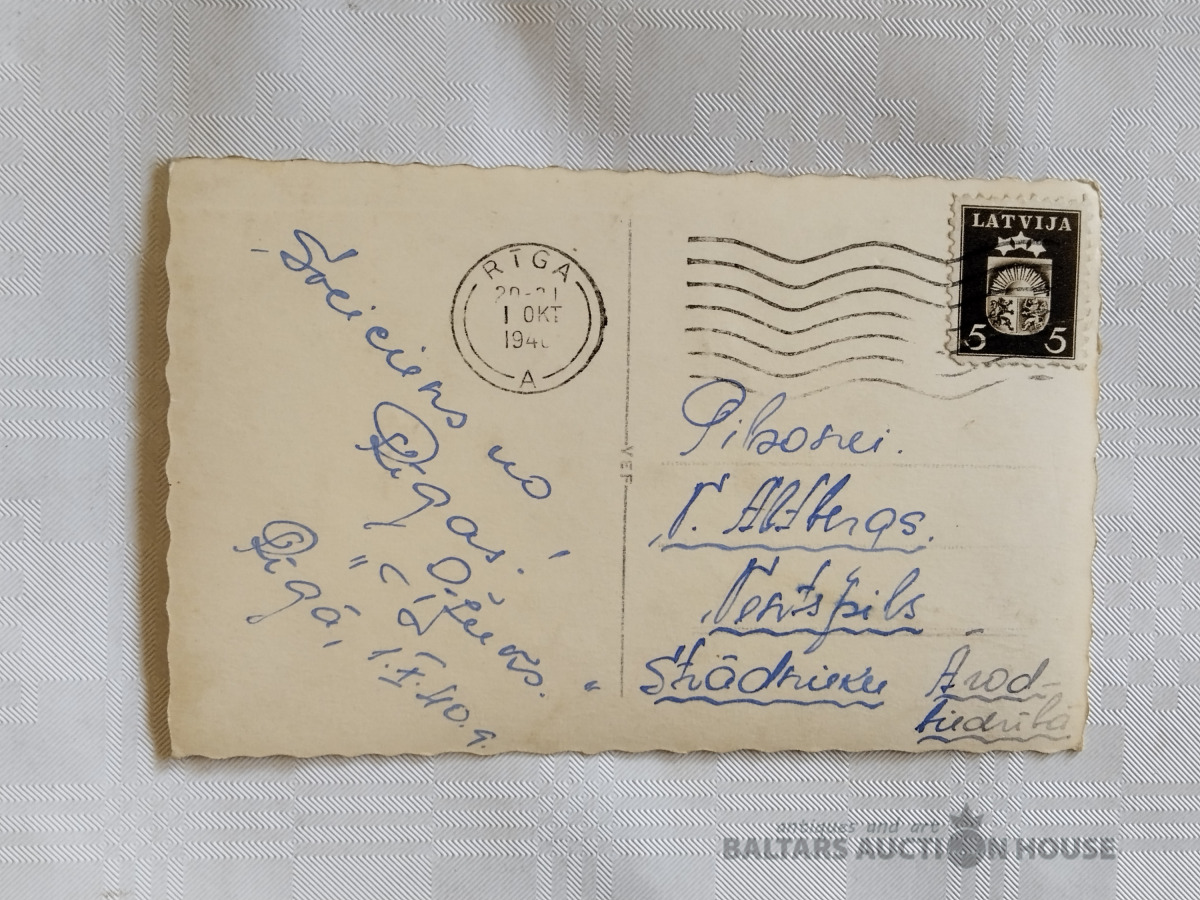 Sveiciens no
Rīgas!
Rīgā, 1.X.40.g.
RĪGA
20-21
1 OKT
194
A
VEF
LATVIJA
5 5
Pilsonei.
V. Altbergs.
Ventspils
Strādnieku Arod-
biedrībā
antiques and art
BALTARS AUCTION HOUSE